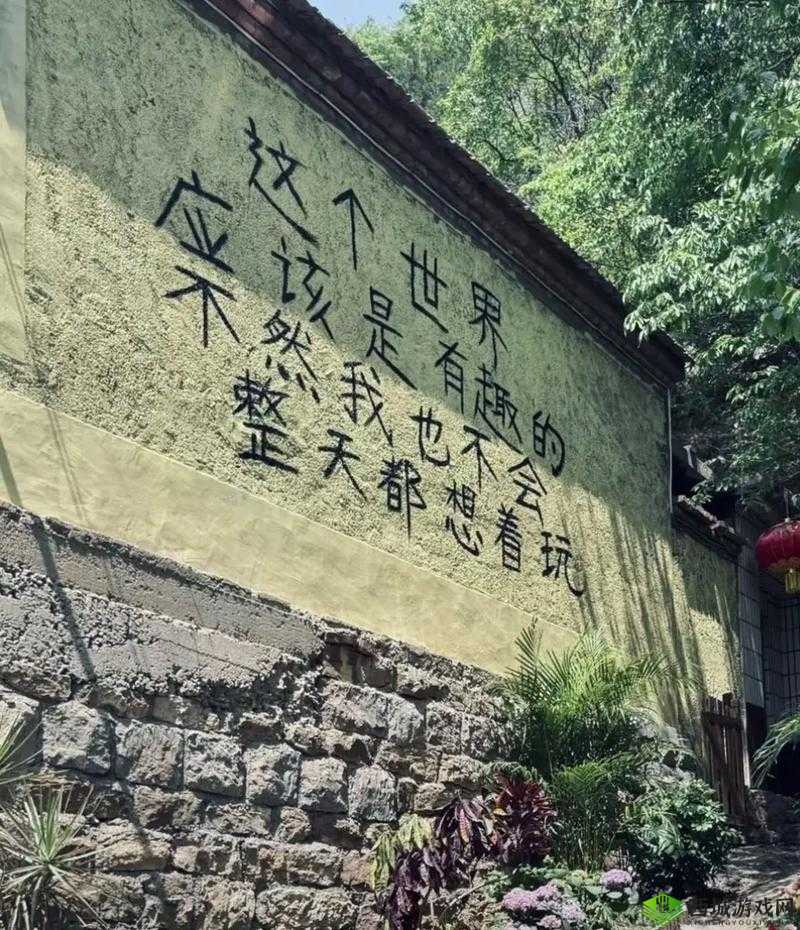 这个世界
应该是有趣的
不然我也不会
整天都想着玩
西城游戏网
XICHENGYOUXIWANG